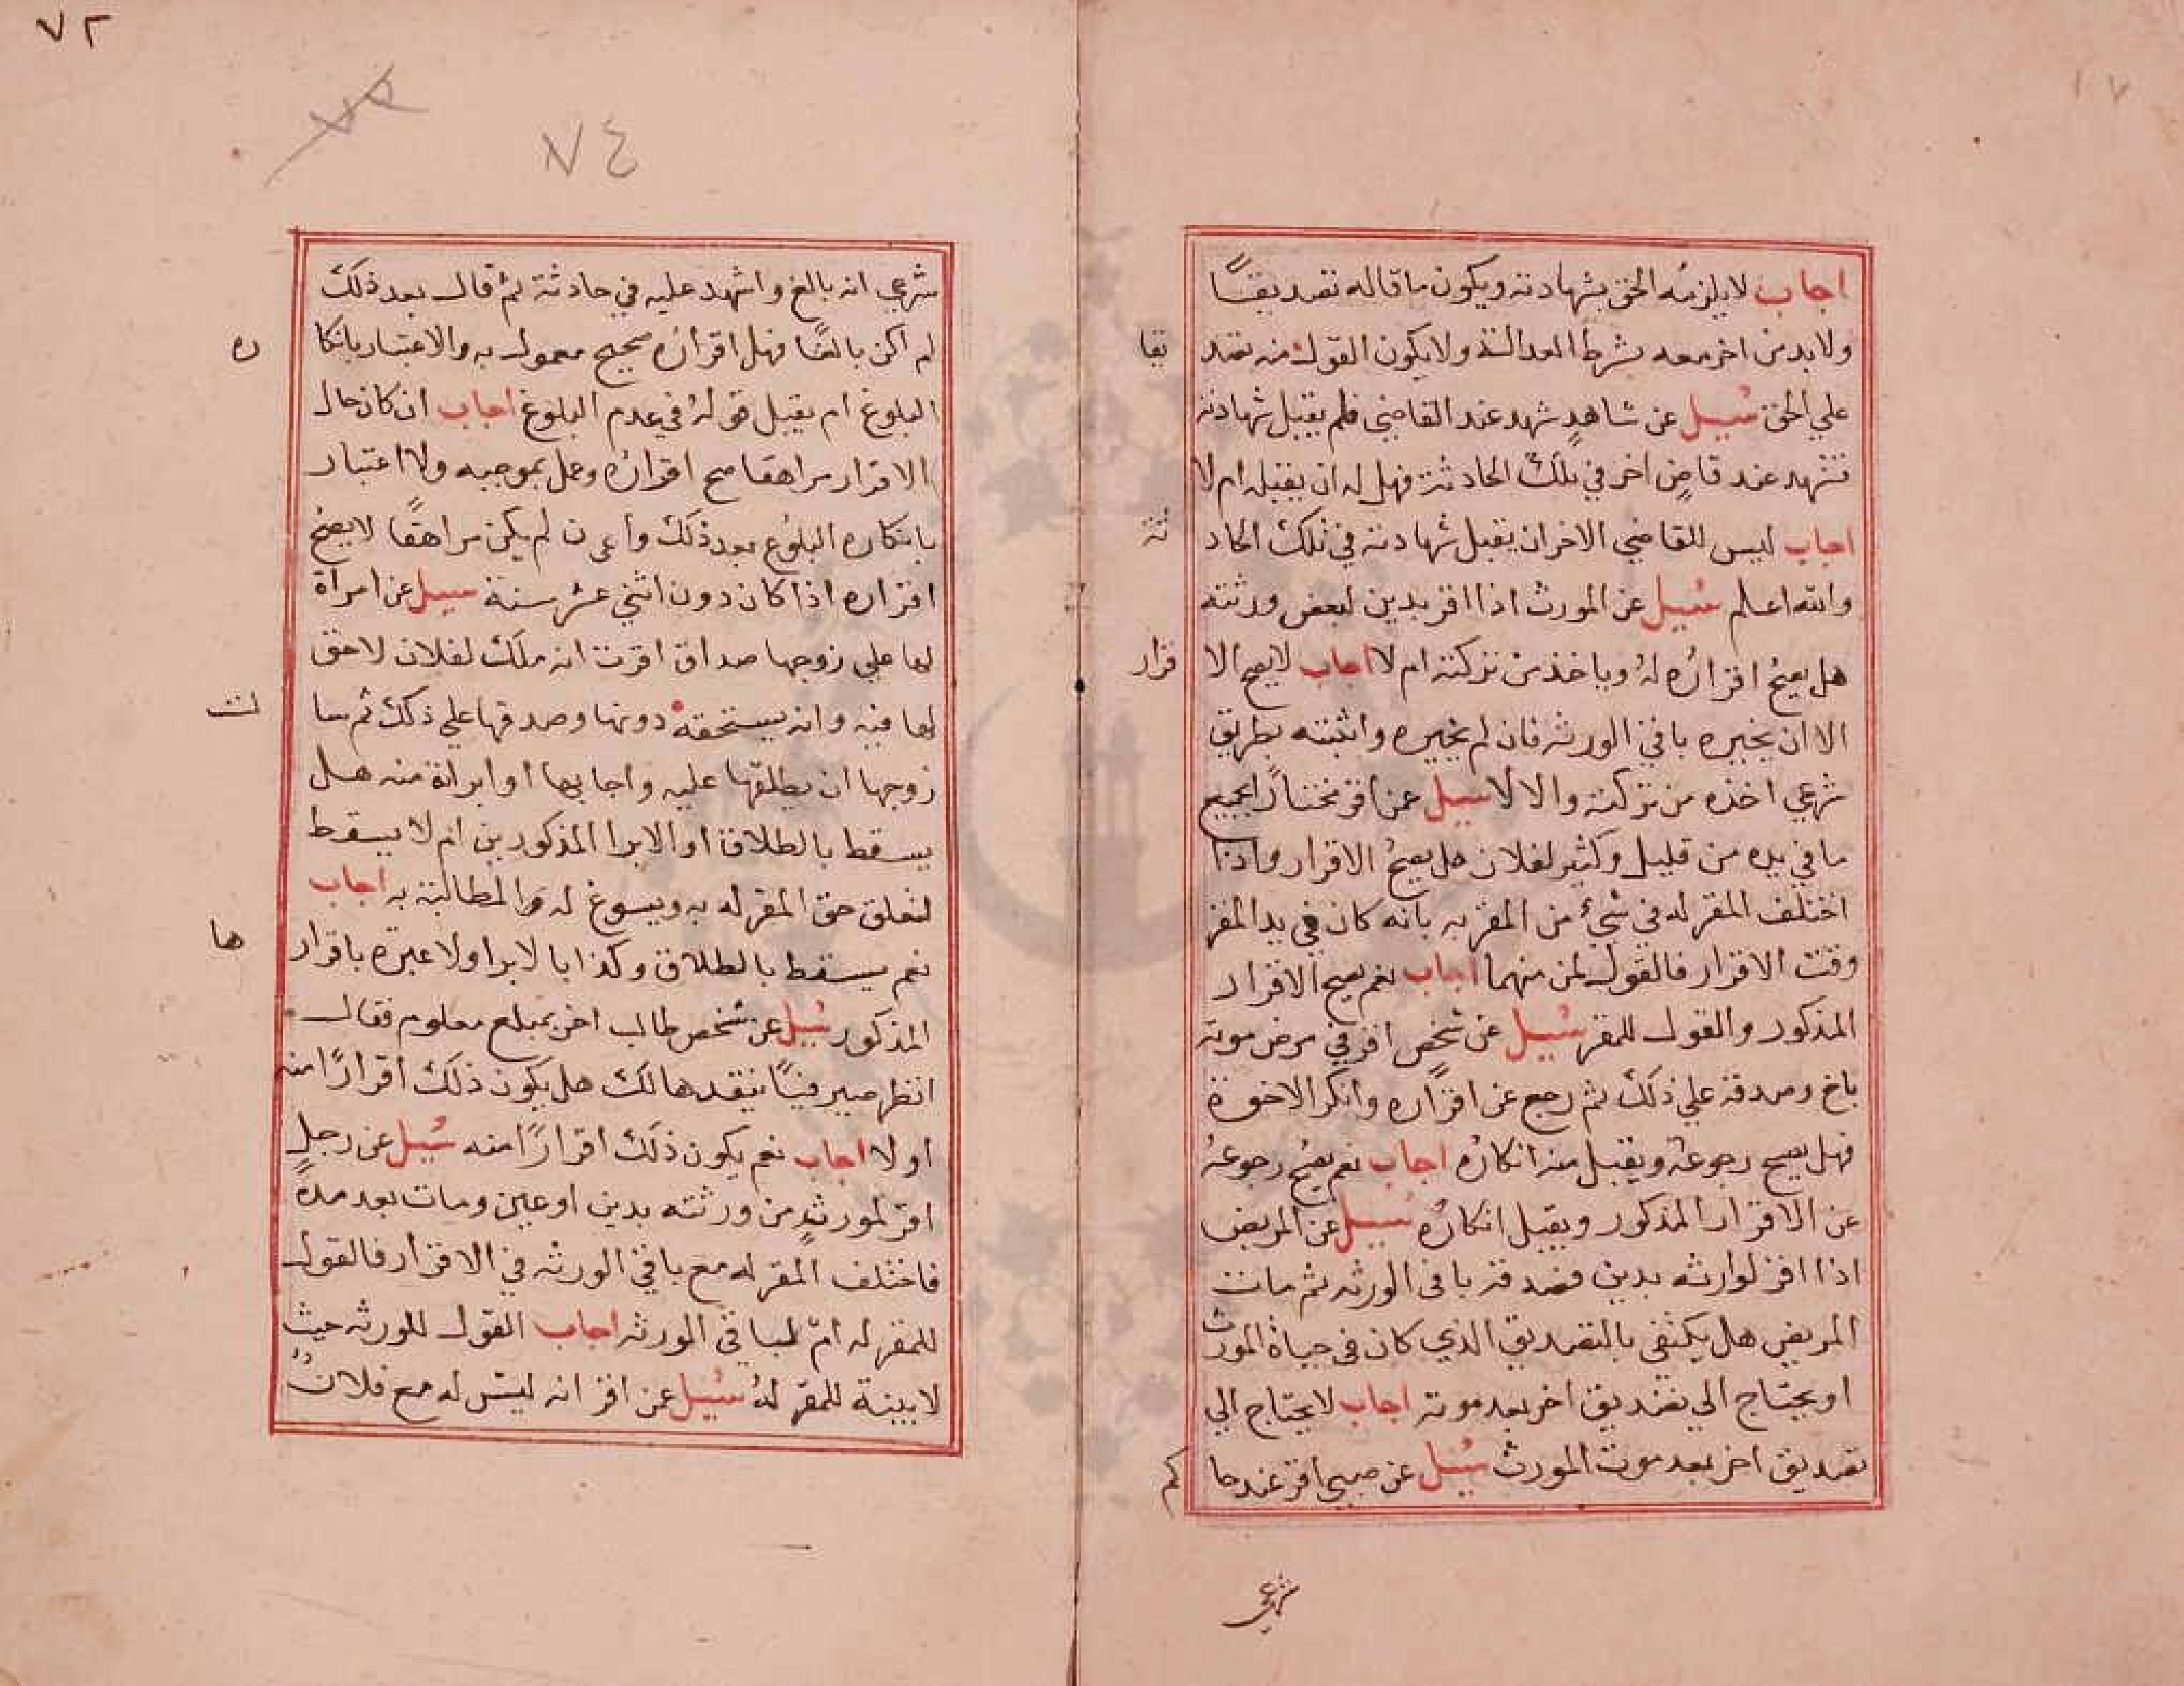 اجاب لا يلزمه الحق بشهادته ويكون ما قاله تصديقًا
ولا بد من اخر معه بشرط العدالة ولا يكون القول منه تصد يقا
علي الحق سُيل عن شاهدٍ شهد عند القاضي فلم يقبل شهادته
فشهد عند قاضٍ اخر في تلك الحادثة فهل له ان يقبله ام لا
اجاب ليس للقاضي الاخر ان يقبل شهادته في تلك الحاد ثة
والله اعلم سُيل عن المورث اذا اقر بدين لبعض ورثته
هل يصحُ اقرارُه لهُ وياخذ من تركته ام لا اجاب لا يصح الا قرار
الا ان يجيره باقي الورثه فان لم يجيره واثبته بطريق
شرعي اخذه من تركته والا لا سيل عمن اقر مختارًا بجميع
ما في يده من قليل وكثير لفلان هل يصحُ الاقرار واذا
اختلف المقر له في شيء من المقر به بانه كان في يد المقر
وقت الاقرار فالقول لمن منهما اجاب نعم يصح الاقرار
المذكور والقول للمقر سُيل عن شخصٍ اقر في مرض موته
باخ وصدقه علي ذلك ثم رجع عن اقراره وانكر الاخوة
فهل يصح رجوعه ويقبل منه انكارُه اجاب نعم يصح رجوعهُ
عن الاقرار المذكور ويقبل انكارُه سُيل عن المريض
اذا اقر لوارثه بدين فصدقه باقي الورثه ثم مات
المريض هل يكتفي بالتصديق الذي كان في حياة المورث
او يحتاج الي تصديق اخر بعد موته اجاب لا يحتاج الي
تصديق اخر بعد موت المورث سُيل عن صبي اقر عند حا كم
شرعي
٧٢
٧٥
٧٤
شرعي انه بالغ واشهد عليه في حادثة ثم قال بعد ذلك
لم اكن بالغًا فهل اقرارُه صحيح معمول به والاعتبار بانكا ره
البلوغ ام يقبل قولهُ في عدم البلوغ اجاب ان كان حال
الاقرار مراهقا صح اقرارُه وعمل بموجبه ولا اعتبار
بانكاره البلوغ بعد ذلك وان لم يكن مراهقًا لا يصح
اقراره اذا كان دون اثني عشر سنة سيل عن امراة
لها علي زوجها صداق اقرت انه ملك لفلان لا حق
لها فيه وانه يستحقه دونها وصدقها علي ذلك ثم سا لت
زوجها ان يطلقها عليه واجابها او ابراته منه هل
يسقط بالطلاق او الابرا المذكورين ام لا يسقط
لتعلق حق المقر له به ويسوغ له المطالبة به اجاب
نعم يسقط بالطلاق وكذا بالابرا ولا عبرة باقرار ها
المذكور سُيل عن شخص طالب اخر بمبلغ معلوم فقال
انظر صيرفيًا ينقدها لك هل يكون ذلك اقرارًا منه
او لا اجاب نعم يكون ذلك اقرارًا منه سُيل عن رجلٍ
اقر لمورثٍ من ورثته بدين او عين ومات بعد مدةً
فاختلف المقر له مع باقي الورثه في الاقرار فالقول
للمقر له ام لباقي الورثه اجاب القول للورثه حيث
لا بينة للمقر لهُ سُيل عن اقر انه ليس له مع فلان